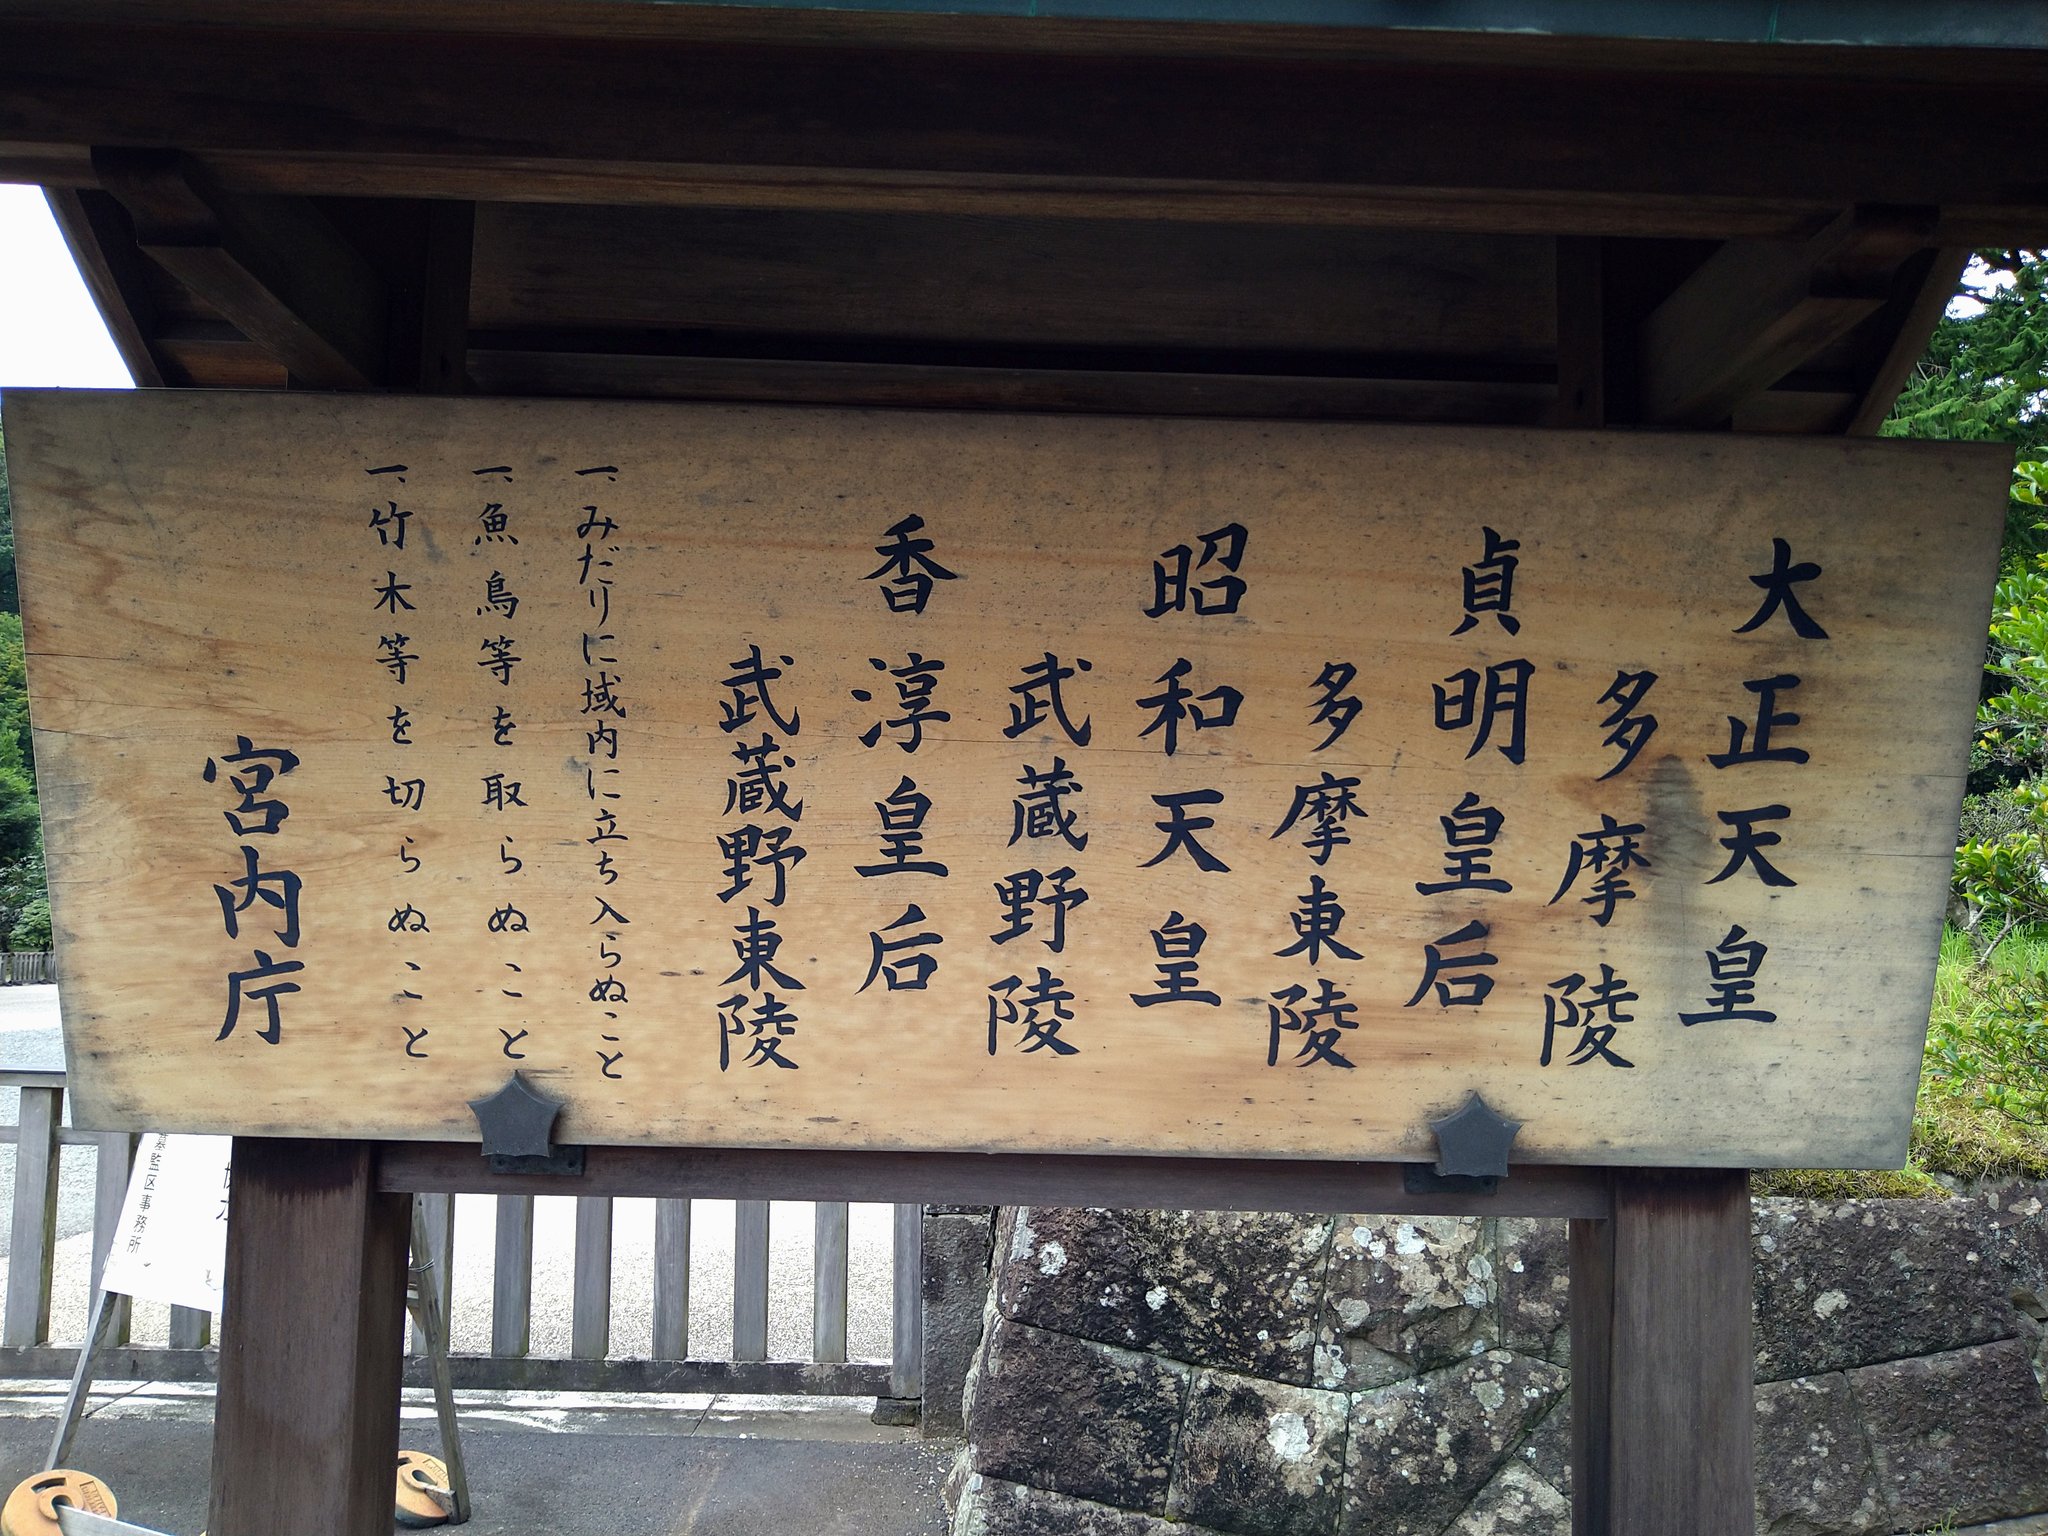 大正天皇
多摩陵
貞明皇后
多摩東陵
昭和天皇
武蔵野陵
香淳皇后
武蔵野東陵
一、みだりに域内に立ち入らぬこと
一、魚鳥等を取らぬこと
一、竹木等を切らぬこと
宮内庁
墓監区事務所